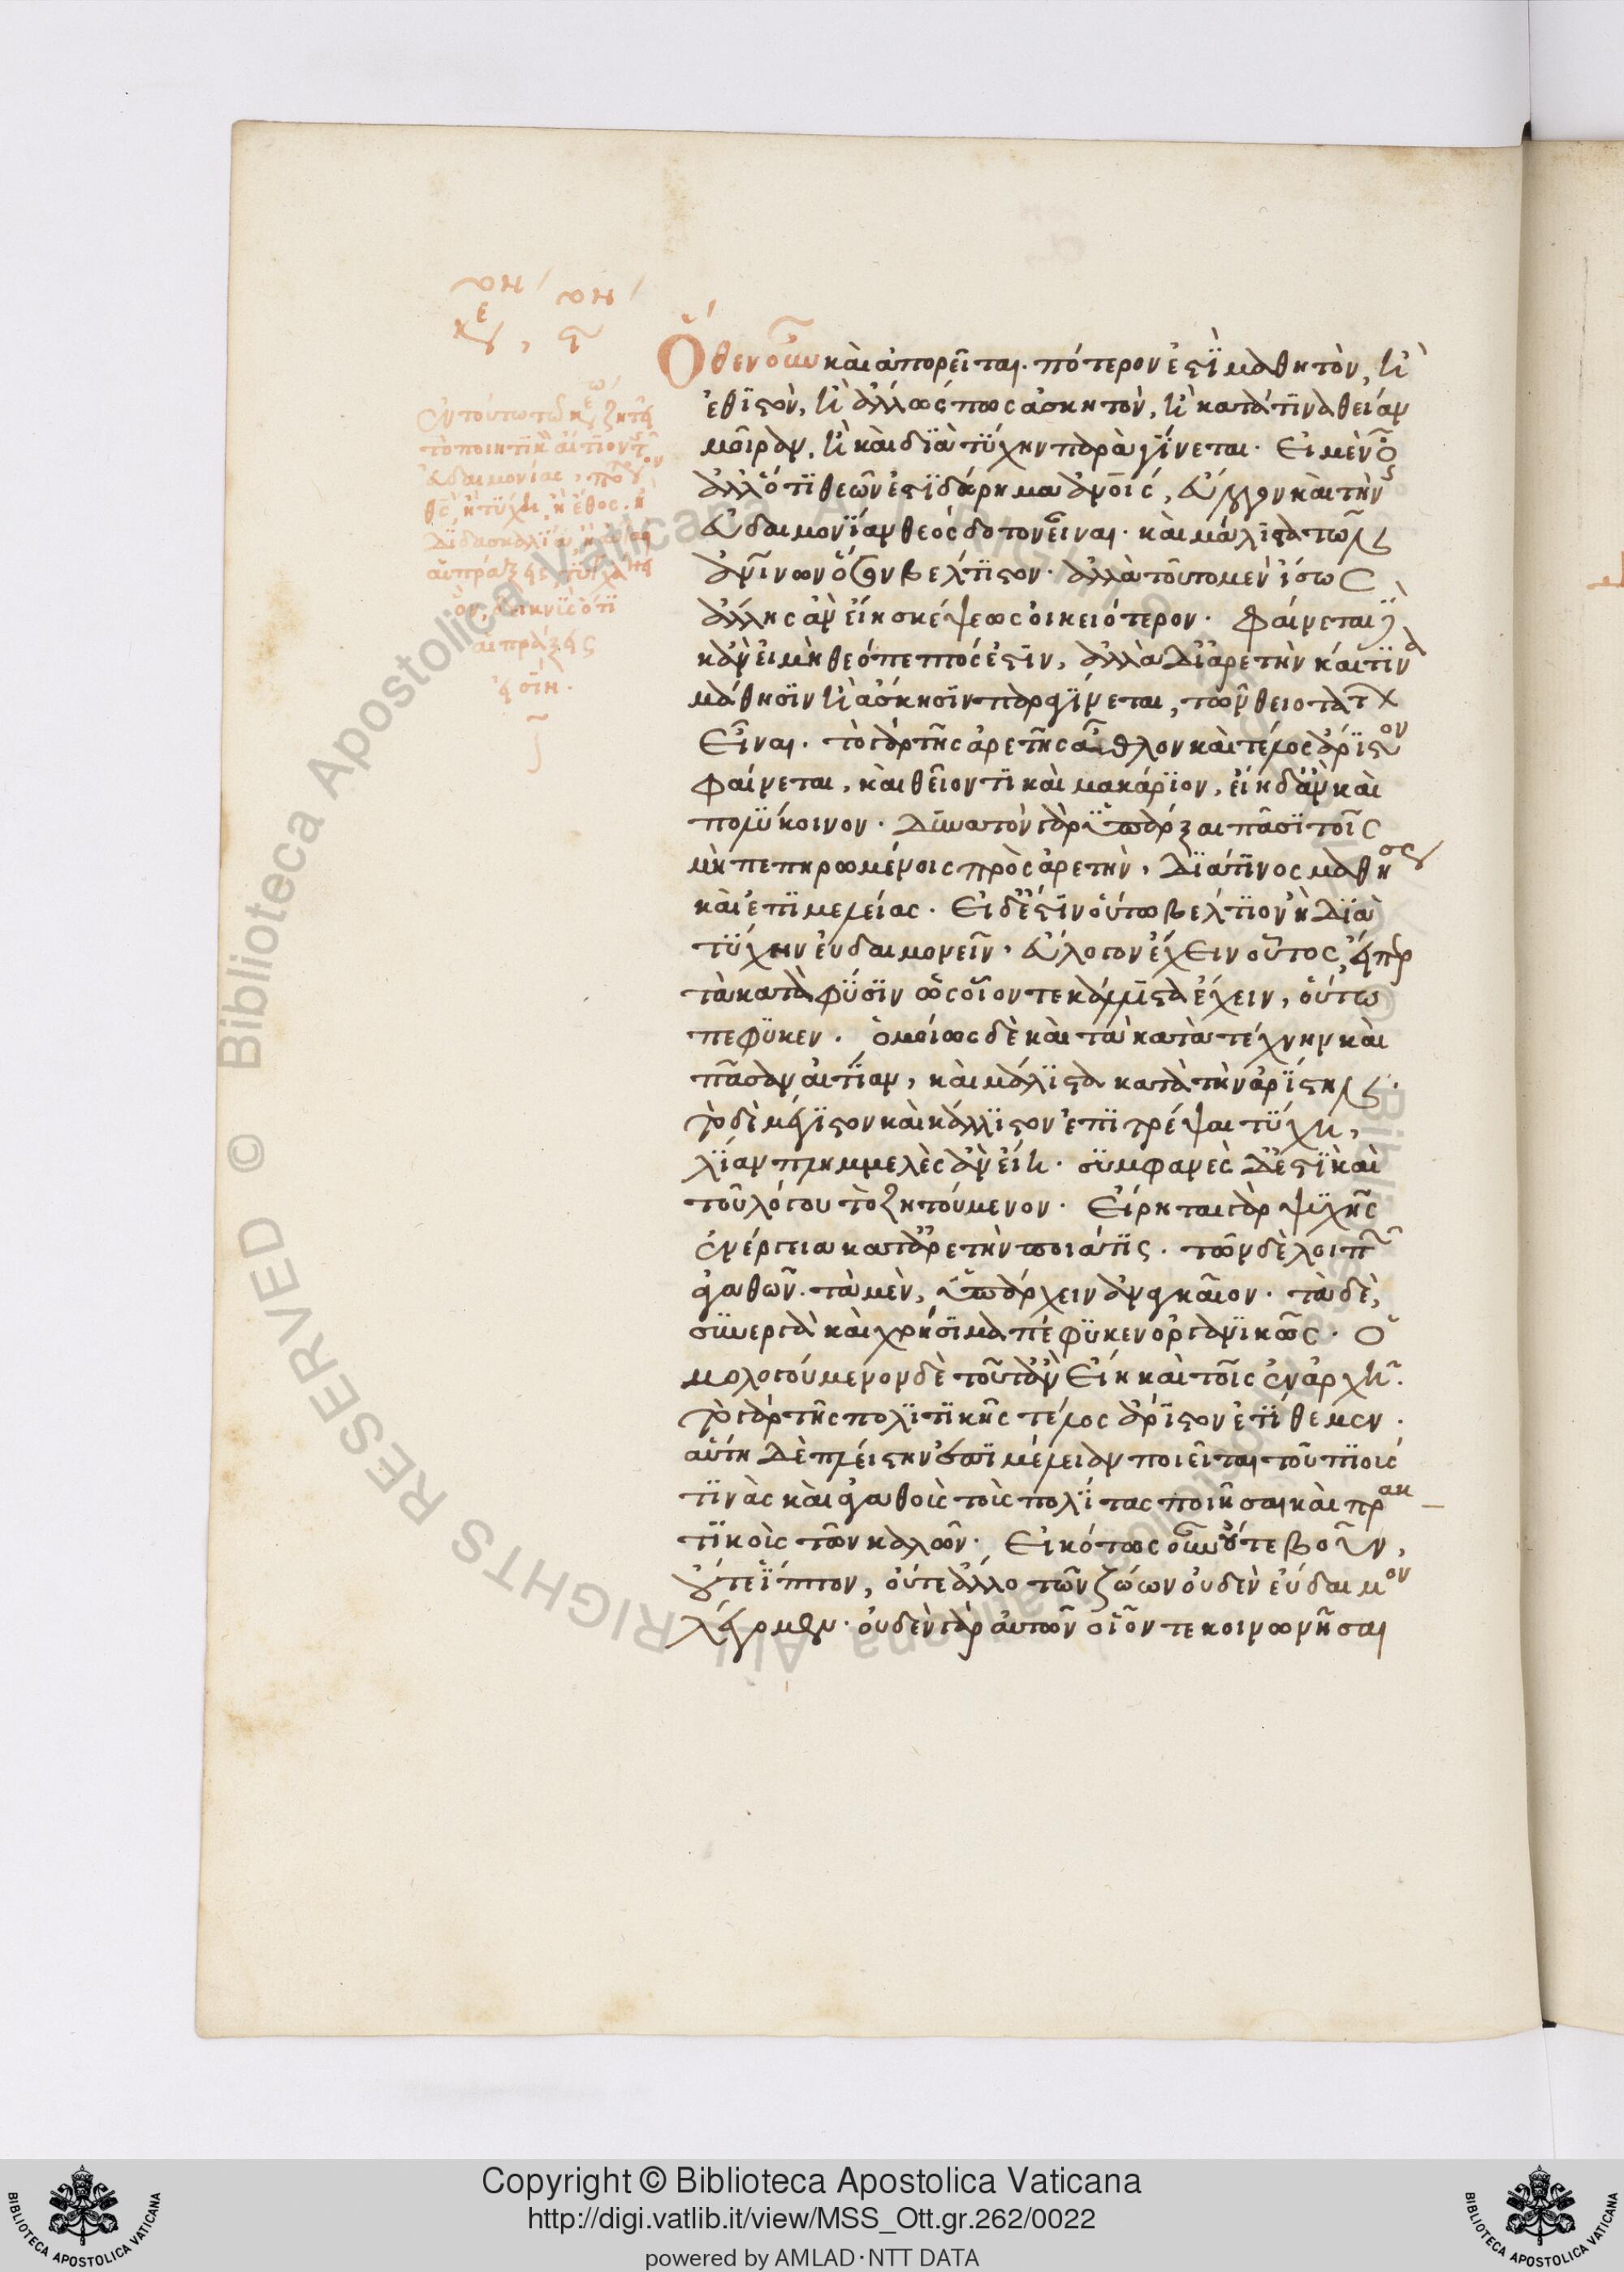 Ὅθεν οὖν καὶ ἀπορεῖται. πότερον ἐστὶ μαθητὸν, ἢ
ἐθιστὸν, ἢ ἄλλως πως ἀσκητὸν, ἢ κατά τινα θείαν
μοῖραν, ἢ καὶ διὰ τύχην παραγίνεται. Εἰ μὲν οὖν
ἄλλό τι θεῶν ἐστὶ δώρημα ἀνοις, εὔλογον καὶ τὴν
εὐδαιμονίαν θεόσδοτον εἶναι. καὶ μάλιστα τῶν
ἀνίνων ὅσον βέλτιστον. ἀλλὰ τοῦτο μὲν ἴσως
ἄλλης ἂν εἴη σκέψεως οἰκειότερον. Φαίνεται δὲ
κἂν εἰ μὴ θεόπεμπτός ἐστιν, ἀλλὰ δι' ἀρετὴν καί τινα
μάθησιν ἢ ἄσκησιν παραγίνεται, τῶν θειοτάτων
Εἶναι. τὸ γὰρ τῆς ἀρετῆς ἆθλον καὶ τέλος ἄριστον
φαίνεται, καὶ θεῖόν τι καὶ μακάριον, εἴη δ' ἂν καὶ
πολύκοινον. δυνατὸν γὰρ ὑπάρξαι πᾶσι τοῖς
μὴ πεπηρωμένοις πρὸς ἀρετὴν, διά τινος μαθήσεως
καὶ ἐπιμελείας. Εἰ δ' ἐστὶν οὕτω βέλτιον ἢ διὰ
τύχην εὐδαιμονεῖν, εὔλογον ἔχειν οὕτος, εἴπερ
τὰ κατὰ φύσιν ὡς οἷόν τε κάλλιστα ἔχειν, οὕτω
πέφυκεν. ὁμοίως δὲ καὶ τὰ κατὰ τέχνην καὶ
πᾶσαν αἰτίαν, καὶ μάλιστα κατὰ τὴν ἀρίστην.
τὸ δὲ μέγιστον καὶ κάλλιστον ἐπιτρέψαι τύχη,
λίαν πλημμελὲς ἂν εἴη. συμφανὲς δ' ἐστὶ καὶ
τοῦ λόγου τὸ ζητούμενον. Εἴρηται γὰρ ψυχῆς
ἐνέργεια κατ' ἀρετὴν ποιά τις. τῶν δὲ λοιπῶν
ἀγαθῶν. τὰ μὲν, ὑπάρχειν ἀναγκαῖον. τὰ δὲ,
συνεργὰ καὶ χρήσιμα πέφυκεν ὀργανικῶς. Ὁ
μολογούμενον δὲ τοῦτ' ἂν Εἴη καὶ τοῖς ἐν ἀρχῆ.
τὸ γὰρ τῆς πολιτικῆς τέλος ἄριστον ἐτίθεμεν.
αὕτη δὲ πλείστην ἐπιμέλειαν ποιεῖται τοῦ ποιούς
τινὰς καὶ ἀγαθοὺς τοὺς πολίτας ποιῆσαι καὶ πρακ
τικοὺς τῶν καλῶν. Εἰκότως οὖν οὔτε βοῦν,
οὔτε ἵππον, οὔτε ἄλλο τῶν ζώων οὐδὲν εὔδαιμον
λέγομεν. οὐδὲν γὰρ αὐτῶν οἷόν τε κοινωνῆσαι
Ἐν τούτω τῶ κεω ζητεῖ
τὸ ποιητικὸν αἴτιον τῆς
εὐδαιμονίας, πότερον
θς, ἢ τύχη, ἢ ἔθος, ἢ
διδασκαλία, ἢ
αἱ πράξεις
ὅτι
αἱ πράξεις
εἰσίν.
Vaticana
Biblioteca Apostolica Vaticana
© Biblioteca Apostolica Vaticana ALL RIGHTS RESERVED
Copyright © Biblioteca Apostolica Vaticana
http://digi.vatlib.it/view/MSS_Ott.gr.262/0022
powered by AMLAD·NTT DATA
BIBLIOTECA APOSTOLICA VATICANA
BIBLIOTECA APOSTOLICA VATICANA